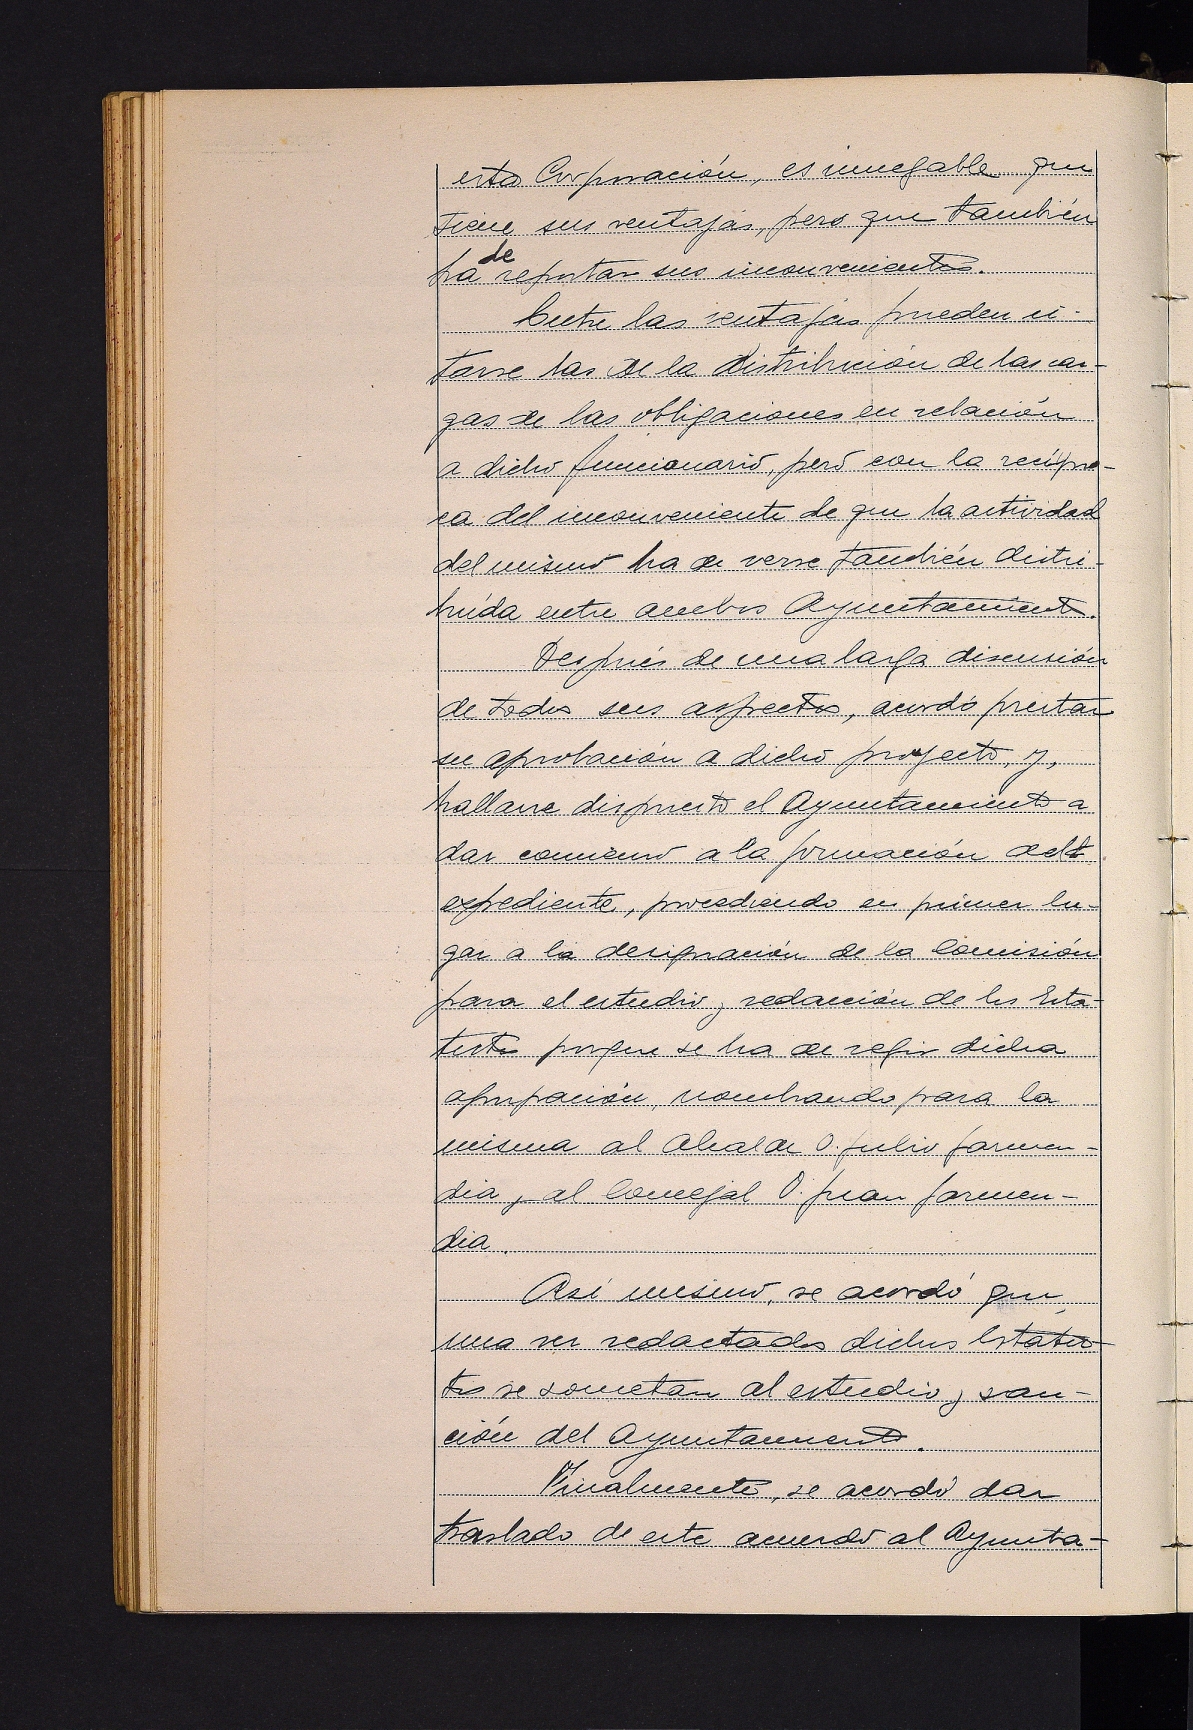 esta Corporación, es innegable que
tiene sus ventajas, pero que también
ha de reportar sus inconvenientes.
Entre las ventajas pueden ci-
tarse las de la distribución de las car-
gas de las obligaciones en relación
a dicho funcionario, pero con la recípro-
ca del inconveniente de que la actividad
del mismo ha de verse también distri-
buída entre ambos Ayuntamient.
Después de una larga discusión
de todos sus aspectos, acordó prestar
su aprobación a dicho proyecto, y,
hallarse dispuesto el Ayuntamiento a
dar comienzo a la formación del
expediente, procediendo en primer lu-
gar a la designación de la Comisión
para el estudio y redacción de los Esta-
tutos porque se ha de regir dicha
agrupación, nombrando para la
misma al Alcalde D. Julio Garmen-
dia y al Concejal D. Juan Garmen-
dia.
Así mismo, se acordó que
una vez redactados dichos Estatu-
tos se sometan al estudio y san-
ción del Ayuntamiento.
Finalmente, se acordó dar
traslado de este acuerdo al Ayunta-